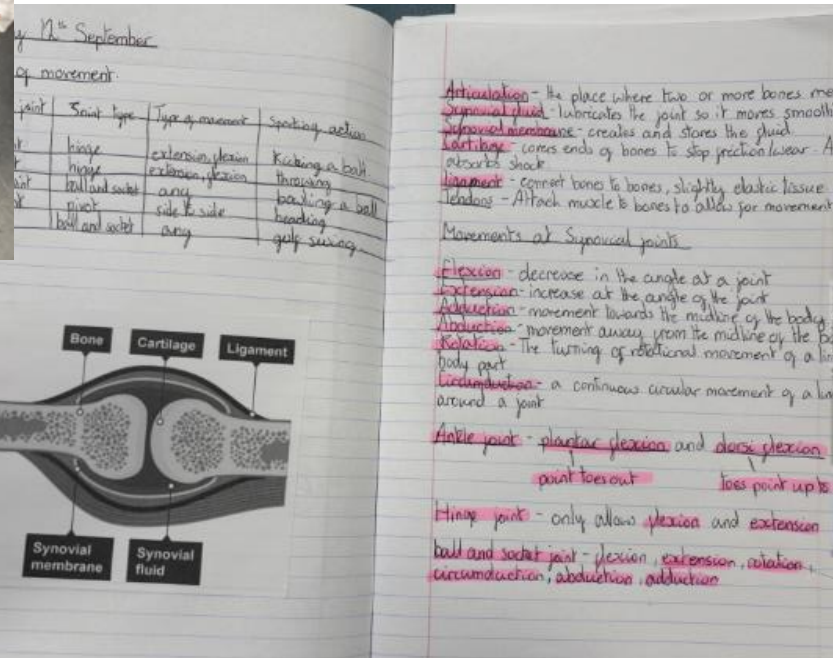 y 12th September
of movement.
joint | Joint type | Type of movement | Sporting action
hinge | extension, flexion | Kicking a ball
hinge | extension, flexion | throwing
ball and socket | any | bowling a ball
pivot | side to side | heading
ball and socket | any | golf swing
Bone
Cartilage
Ligament
Synovial
membrane
Synovial
fluid
Articulation - the place where two or more bones me
Synovial fluid - lubricates the joint so it moves smooth
Synovial membrane - creates and stores the fluid.
Cartilage - covers ends of bones to stop friction/wear - A
absorbs shock
ligament - connect bones to bones, slightly elastic tissue
Tendons - Attach muscle to bones to allow for movement
Movements at Synovial joints
Flexion - decrease in the angle at a joint
Extension - increase at the angle of the joint
Adduction - movement towards the midline of the body
Abduction - movement away from the midline of the bo
Rotation - The turning of rotational movement of a lim
body part
Circumduction - a continuous circular movement of a lim
around a joint
Ankle joint - plantar flexion and dorsi flexion
point toes out
toes point up to
Hinge joint - only allows flexion and extension
ball and socket joint - flexion, extension, rotation,
circumduction, abduction, adduction